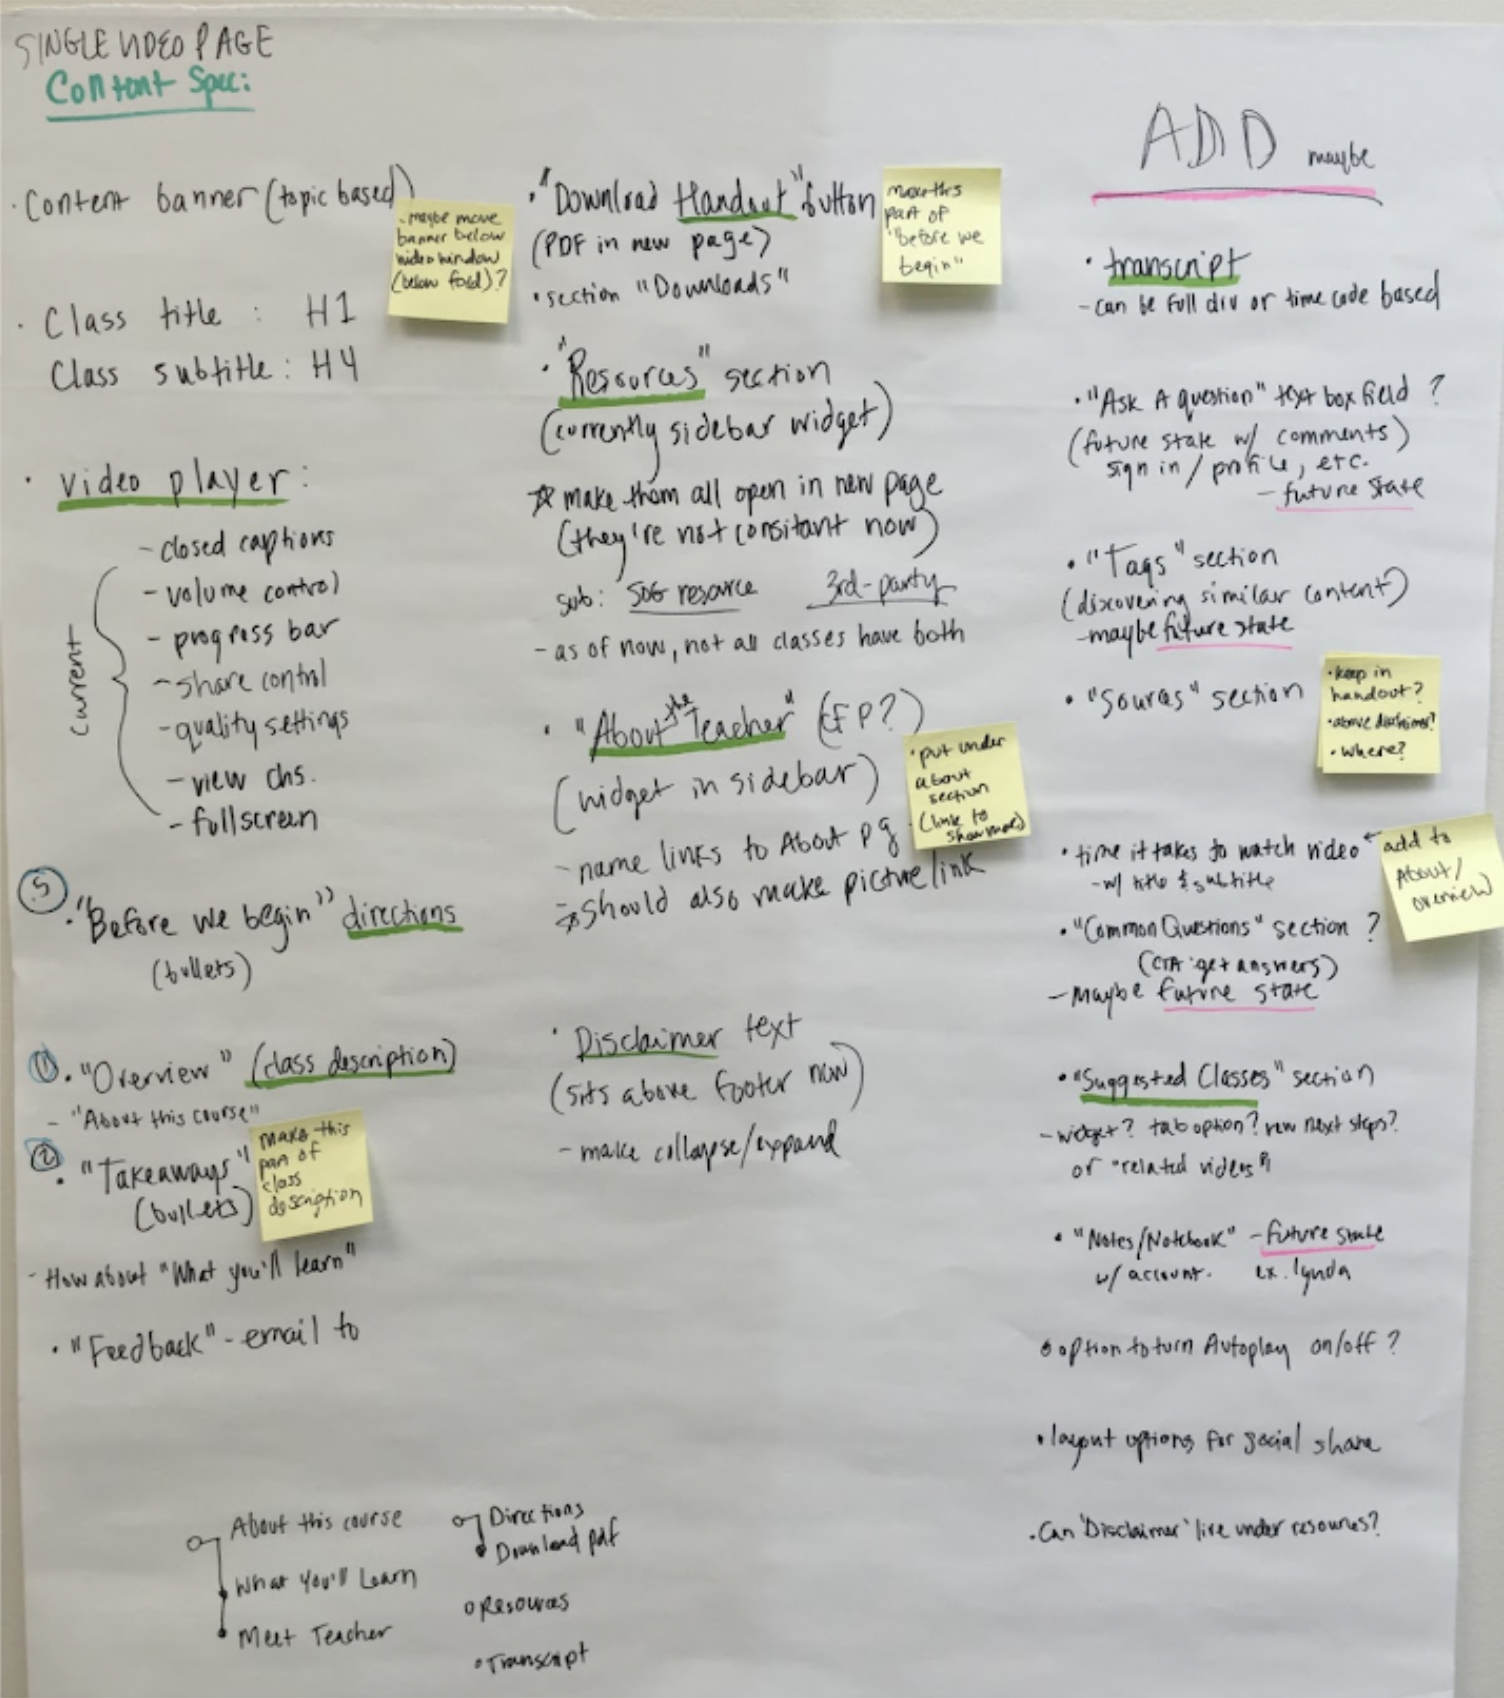 SINGLE VIDEO PAGE
Content Spec:
· Content banner (topic based)
- maybe move
banner below
video window
(below fold)?
· Class title : H1
Class subtitle : H4
· Video player :
current
- closed captions
- volume control
- progress bar
- share control
- quality settings
- view chs.
- fullscreen
5
· "Before we begin" directions
(bullets)
1
· "Overview" (class description)
- "About this course"
2
· "Takeaways"
(bullets)
make this
part of
class
description
- How about "What you'll learn"
· "Feedback" - email to
· "Download Handout" button
(PDF in new page)
· section "Downloads"
make this
part of
"before we
begin"
· "Resources" section
(currently sidebar widget)
☆ make them all open in new page
(they're not consitant now)
sub: SOG resource 3rd-party
- as of now, not all classes have both
· "About the Teacher" (EFP?)
(widget in sidebar)
· put under
about
section
(link to
show more)
- name links to About pg
☆ should also make picture link
· Disclaimer text
(sits above footer now)
- make collapse/expand
ADD maybe
· transcript
- can be full div or time code based
· "Ask A question" text box field ?
(future state w/ comments)
sign in / profile, etc.
- future state
· "Tags" section
(discovering similar content)
- maybe future state
· "Sources" section
· keep in
handout?
· above disclaimer?
· where?
· time it takes to watch video ←
- w/ title & subtitle
add to
About/
overview
· "Common Questions" section ?
(CTA: get answers)
- Maybe future state
· "Suggested Classes" section
- widget? tab option? new next steps?
or "related videos"
· "Notes/Notebook" - future state
w/ account. ex. lynda
· option to turn Autoplay on/off ?
· layout options for social share
· Can 'Disclaimer' live under resources?
About this course
What You'll Learn
Meet Teacher
Directions
Download pdf
Resources
Transcript